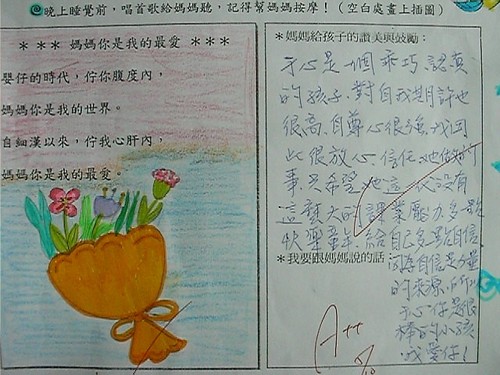 晚上睡覺前，唱首歌給媽媽聽，記得幫媽媽按摩！（空白處畫上插圖）
＊＊＊ 媽媽你是我的最愛 ＊＊＊
嬰仔的時代，佇你腹度內，
媽媽你是我的世界。
自細漢以來，佇我心肝內，
媽媽你是我的最愛。
＊媽媽給孩子的讚美與鼓勵：
于心是一個乖巧認真
的孩子，對自我期許也
很高，自尊心很強，我因
此很放心、信任她做的
事，只希望她
這麼大的課業壓力，多點
快樂童年，給自己多點自信
因為自信是力量
的來源，
于心你是很
棒的小孩
我愛你！
＊我要跟媽媽說的話：
A++
5/10